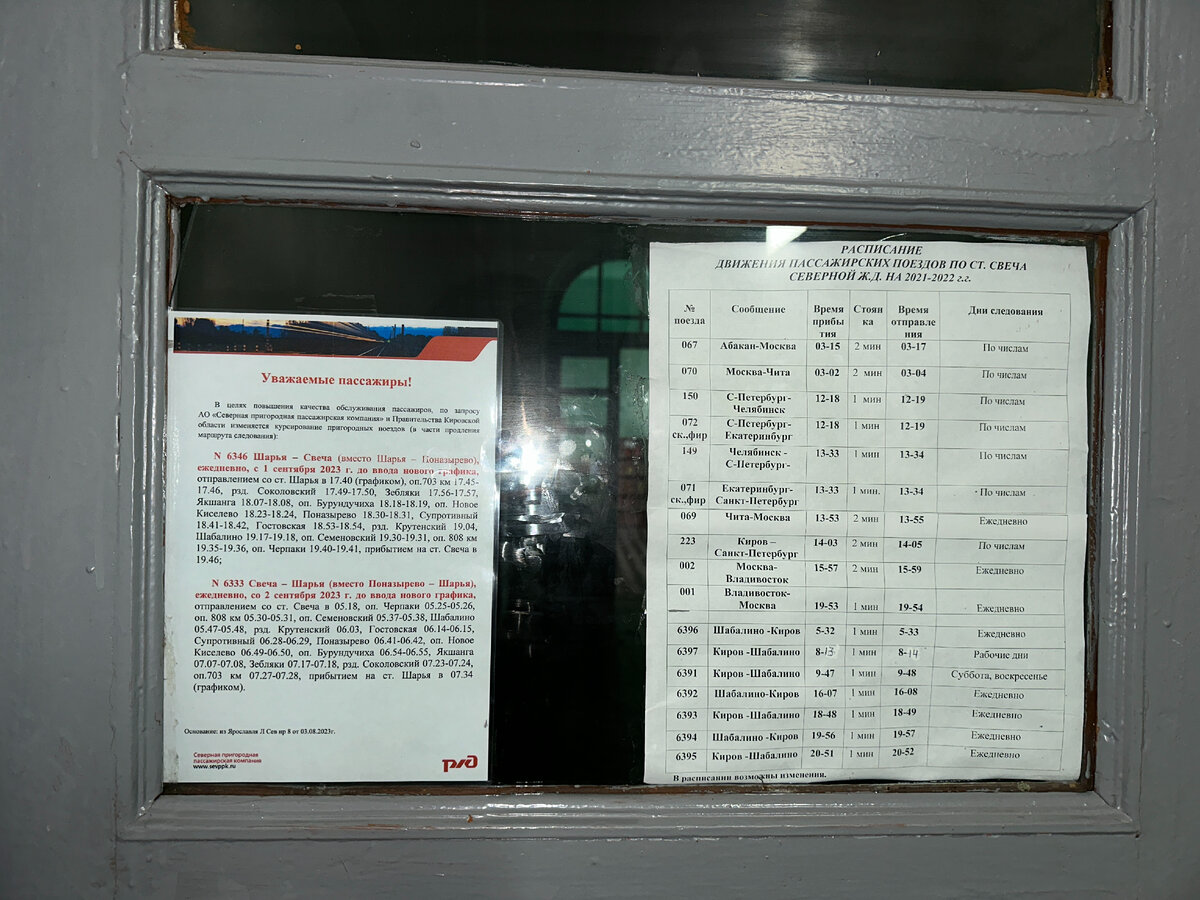 Уважаемые пассажиры!
В целях повышения качества обслуживания пассажиров, по запросу
АО «Северная пригородная пассажирская компания» и Правительства Кировской
области изменяется курсирование пригородных поездов (в части продления
маршрута следования):
N 6346 Шарья – Свеча (вместо Шарья – Поназырево),
ежедневно, с 1 сентября 2023 г. до ввода нового графика,
отправлением со ст. Шарья в 17.40 (графиком), оп.703 км 17.45-
17.46, рзд. Соколовский 17.49-17.50, Зебляки 17.56-17.57,
Якшанга 18.07-18.08, оп. Бурундучиха 18.18-18.19, оп. Новое
Киселево 18.23-18.24, Поназырево 18.30-18.31, Супротивный
18.41-18.42, Гостовская 18.53-18.54, рзд. Крутенский 19.04,
Шабалино 19.17-19.18, оп. Семеновский 19.30-19.31, оп. 808 км
19.35-19.36, оп. Черпаки 19.40-19.41, прибытием на ст. Свеча в
19.46;
N 6333 Свеча – Шарья (вместо Поназырево – Шарья),
ежедневно, со 2 сентября 2023 г. до ввода нового графика,
отправлением со ст. Свеча в 05.18, оп. Черпаки 05.25-05.26,
оп. 808 км 05.30-05.31, оп. Семеновский 05.37-05.38, Шабалино
05.47-05.48, рзд. Крутенский 06.03, Гостовская 06.14-06.15,
Супротивный 06.28-06.29, Поназырево 06.41-06.42, оп. Новое
Киселево 06.49-06.50, оп. Бурундучиха 06.54-06.55, Якшанга
07.07-07.08, Зебляки 07.17-07.18, рзд. Соколовский 07.23-07.24,
оп.703 км 07.27-07.28, прибытием на ст. Шарья в 07.34
(графиком).
Основание: из Ярославля Л Сев нр 8 от 03.08.2023г.
Северная пригородная
пассажирская компания
www.sevppk.ru
ржд
РАСПИСАНИЕ
ДВИЖЕНИЯ ПАССАЖИРСКИХ ПОЕЗДОВ ПО СТ. СВЕЧА
СЕВЕРНОЙ Ж.Д. НА 2021-2022 г.г.
№ поезда Сообщение Время прибы тия Стоян ка Время отправле ния Дни следования
067 Абакан-Москва 03-15 2 мин 03-17 По числам
070 Москва-Чита 03-02 2 мин 03-04 По числам
150 С-Петербург- Челябинск 12-18 1 мин 12-19 По числам
072 ск.,фир С-Петербург- Екатеринбург 12-18 1 мин 12-19 По числам
149 Челябинск - С-Петербург- 13-33 1 мин 13-34 По числам
071 ск.,фир Екатеринбург- Санкт-Петербург 13-33 1 мин. 13-34 По числам
069 Чита-Москва 13-53 2 мин 13-55 Ежедневно
223 Киров – Санкт-Петербург 14-03 2 мин 14-05 По числам
002 Москва- Владивосток 15-57 2 мин 15-59 Ежедневно
001 Владивосток- Москва 19-53 1 мин 19-54 Ежедневно
6396 Шабалино -Киров 5-32 1 мин 5-33 Ежедневно
6397 Киров -Шабалино 8-13 1 мин 8-14 Рабочие дни
6391 Киров -Шабалино 9-47 1 мин 9-48 Суббота, воскресенье
6392 Шабалино-Киров 16-07 1 мин 16-08 Ежедневно
6393 Киров -Шабалино 18-48 1 мин 18-49 Ежедневно
6394 Шабалино -Киров 19-56 1 мин 19-57 Ежедневно
6395 Киров -Шабалино 20-51 1 мин 20-52 Ежедневно
В расписании возможны изменения.